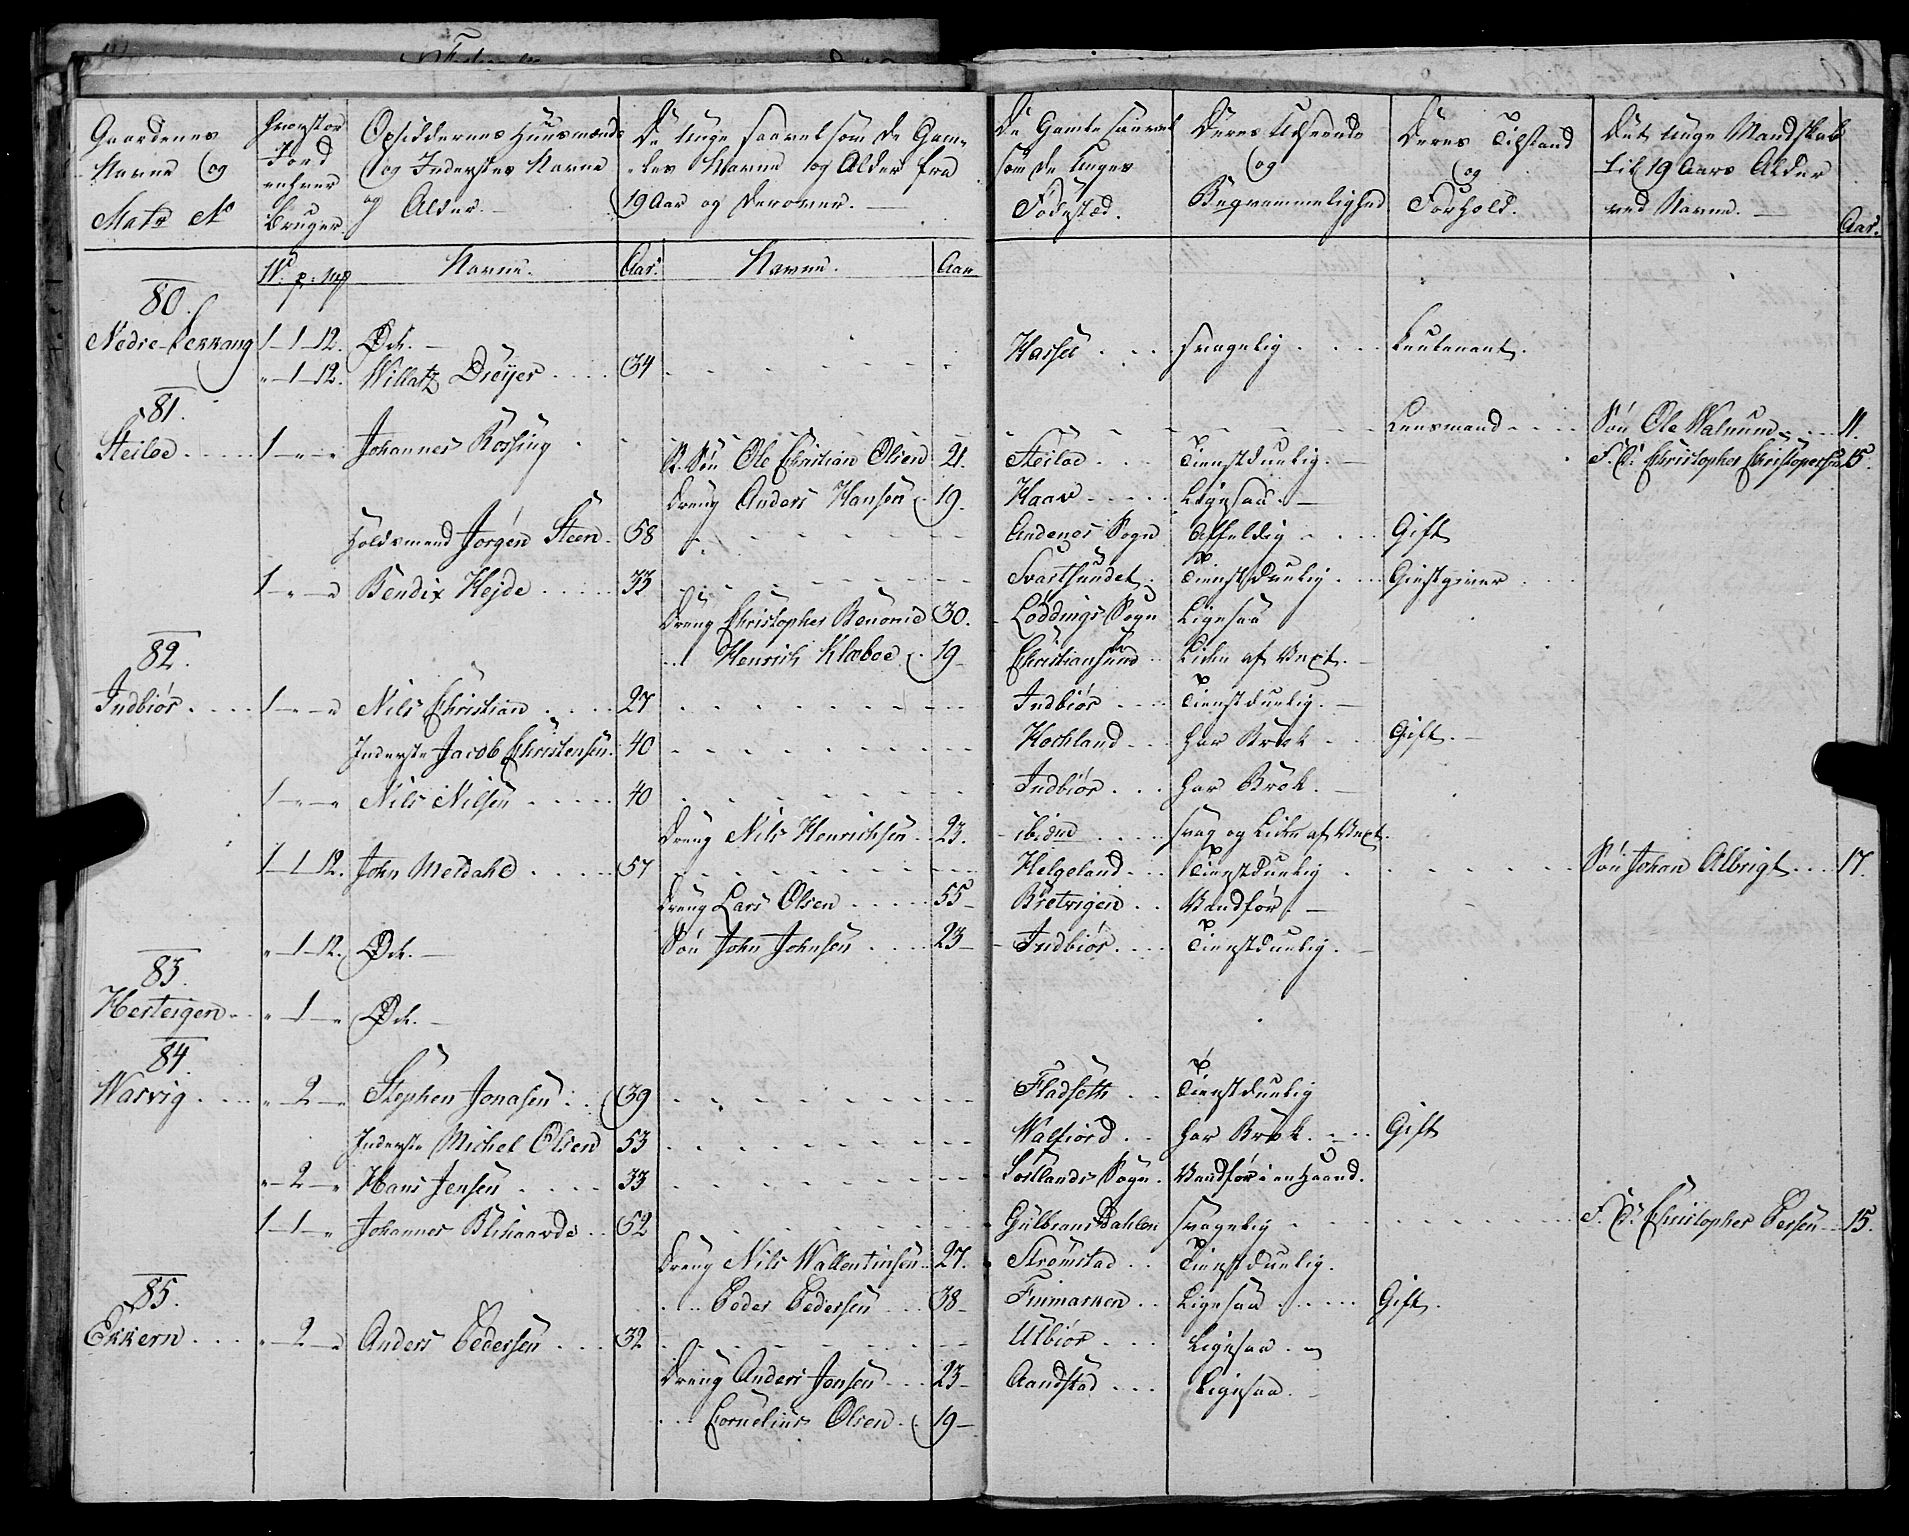 Gaardenes Navne og Matr No
Hvorstor Jord enhver Bruger
Opsiddernes Huusmænds og Inderstes Navne og Alder.
De Unge saavelsom de Gamles Navne og Alder fra 19 Aar og derover.
De Gamle saavel som de Unges Fødested.
Deres Udseende og Beqvemmelighed
Deres Tilstand og Forhold.
Det unge Mandskab til 19 Aars Alder ved Navne.
Aar.
W. p. mk Navne. Aar. Navne. Aar
80.
Nedre 1-1-12. Öde.
"-1-12. Willatz Dreÿer 34 Hassel svagelig Leutenant.
81.
Steiloe 1-"-" Johannes Rossing Lensmand Søn Ole Walnum 11.
St. Søn Ole Christian Olsen 21. Steiloe Tienstduelig. F. D. Christopher Christophersen 15.
Dreng Anders Hansen 19. Haav Ligesaa.
Holdsmand Jørgen Steen 58 Andenes Sogn Affeldig Gift
1-"-" Bendix Hejde 33 Svartsundet Tienstduelig Giestgiver
Dreng Christopher Benonie 30. Löddings Sogn Ligesaa
" Henrich Klæboe 19 Christiansund Liden af Vext.
82.
Indbiör 1-"-" Nils Christian 27 Indbiör Tienstduelig.
Inderste Jacob Christensen 40 Hochland har Brok Gift.
1-"-" Nils Nilsen 40 Indbiör har Brok.
Dreng Nils Henrichsen 23. ibidem svag og Liden af Vext.
1-1-12. John Meldahl 57 Helgeland Tienstduelig Søn Johan Albrigt 17.
Dreng Lars Olsen 55 Bretvigen Vandför.
"-1-12. Öde. Søn John Johnsen 23 Indbiör Tienstduelig.
83.
Hesteigen "-1-" Öde.
84.
Warvig "-2-" Stephen Jonasen 39 Fladseth Tienstduelig
Inderste Michel Olsen 53 Walfiord har Brok. Gift
"-2-" Hans Jensen 33 Sortlands Sogn. Vandför i en Haand.
1-1-" Johannes Blihaavde 52 Gulbrans Dahlen svagelig F. D. Christopher Persen 15.
Dreng Nils Wallentinsen 27. Strømstad Tienstduelig.
" Peder Pedersen 38 Finmarken Ligesaa Gift.
85.
Ekkern "-2-" Anders Pedersen 32 Ulbiör Ligesaa.
Dreng Anders Jonsen 23 Aandstad Ligesaa.
" Cornelius Olsen 19